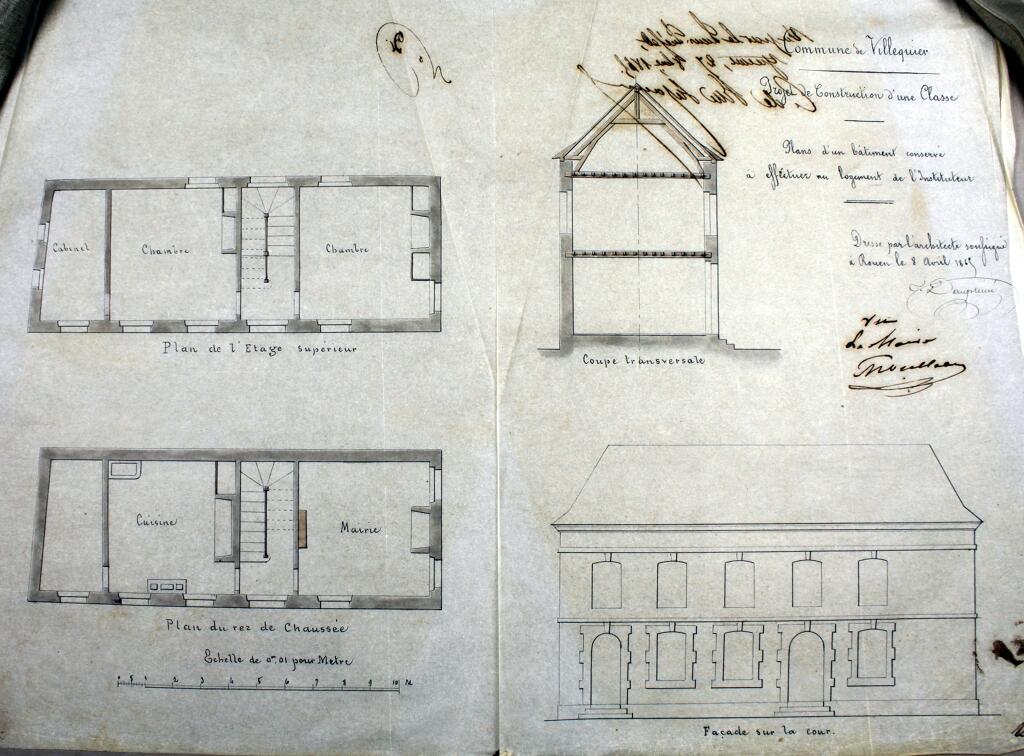 Commune de Villequier
Projet de Construction d'une Classe
Plans d'un bâtiment conservé
à effectuer au logement de l'Instituteur
Dressé par l'architecte soussigné
à Rouen le 8 Avril 1865
Vu
Le Maire
Cabinet
Chambre
Chambre
Plan de l'Etage supérieur
Coupe transversale
Cuisine
Mairie
Plan du rez de Chaussée
Echelle de 0m,01 pour Metre
5 1 2 3 4 5 6 7 8 9 10 M
Façade sur la cour.